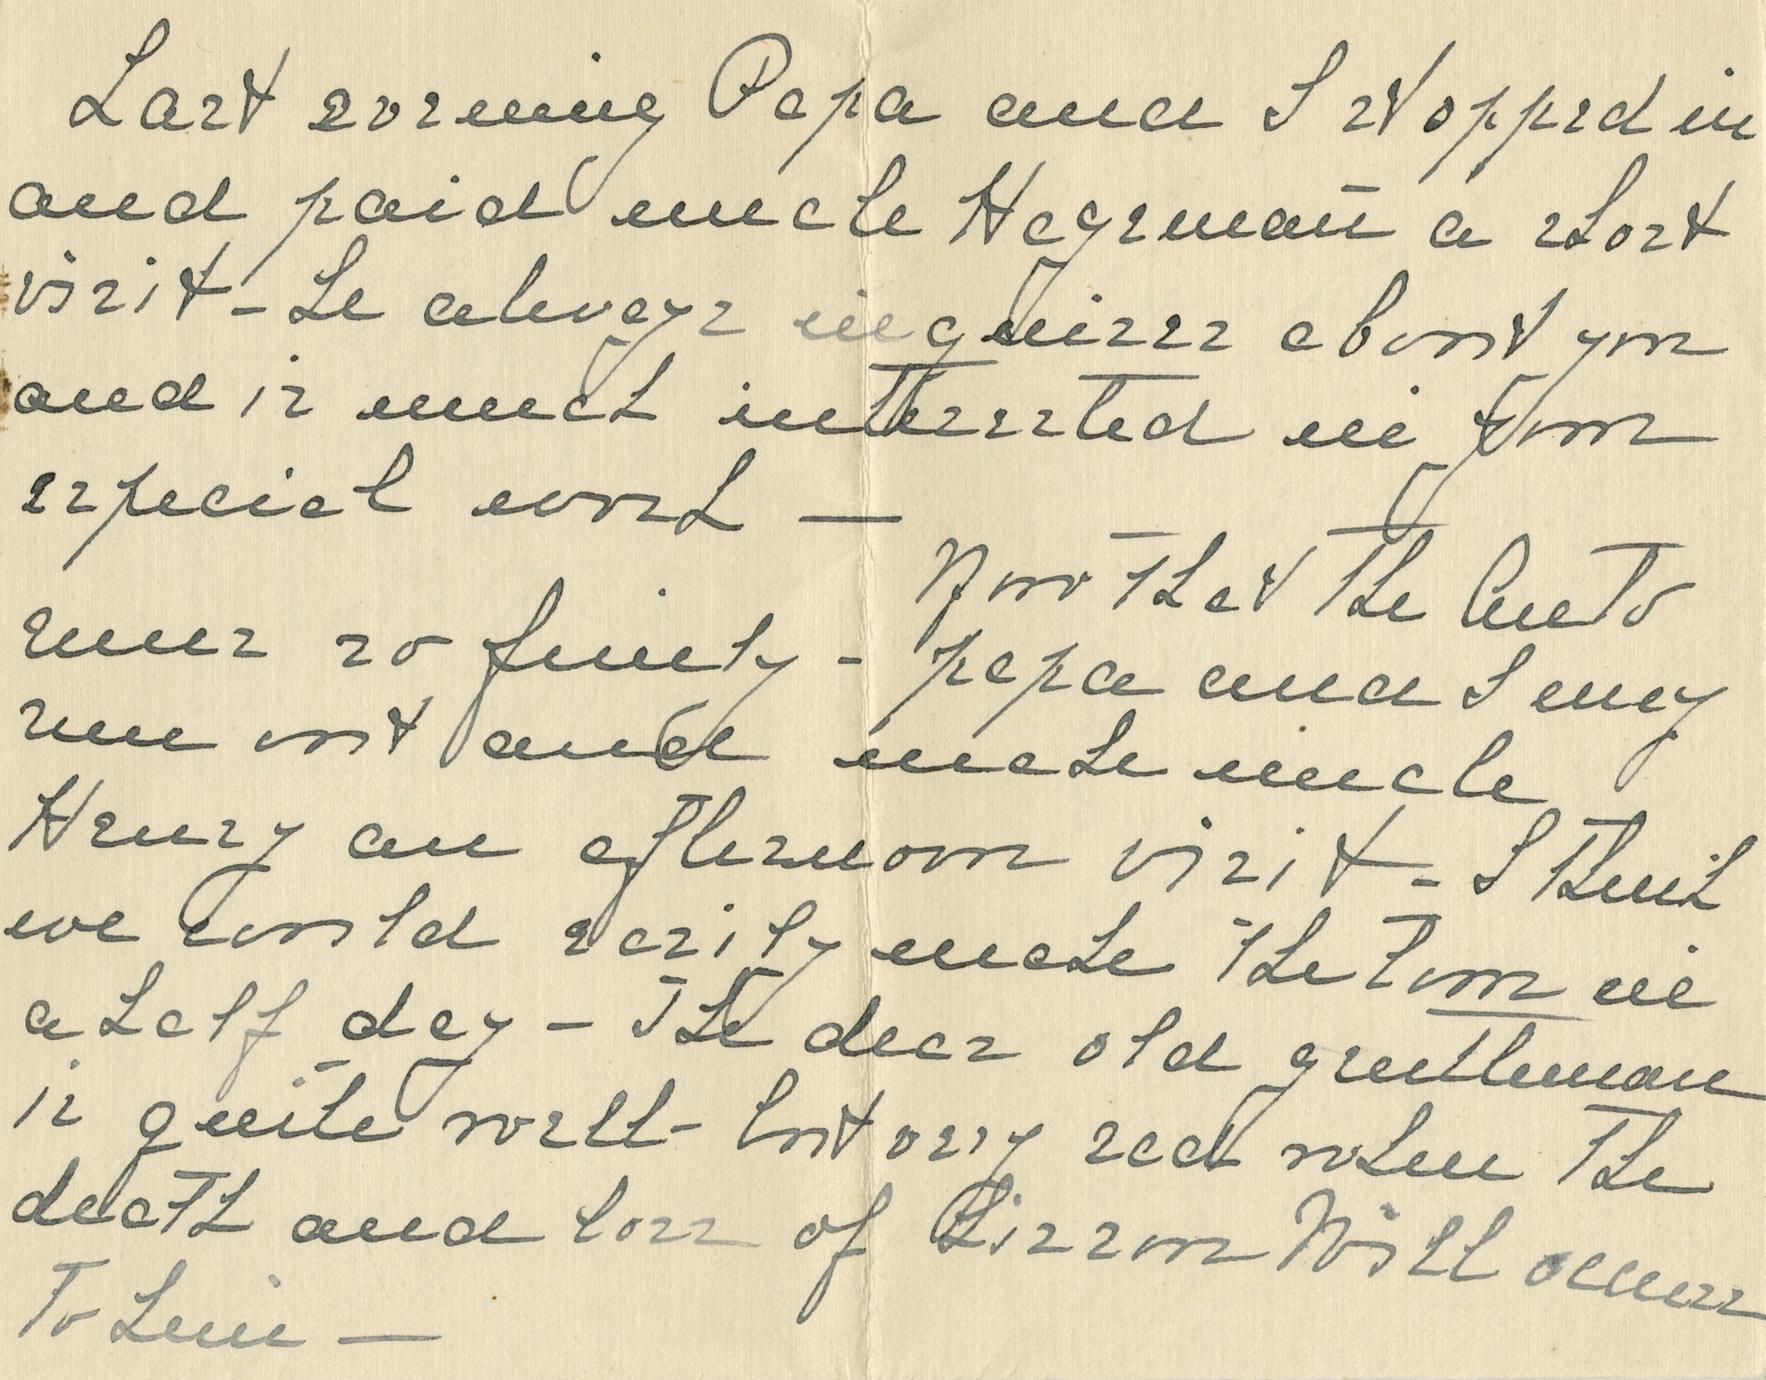 Last evening Papa and I stopped in
and paid uncle Hegeman a short
visit - he always inquires about you
and is much interested in your
especial work —
Now that the Auto
runs so finely - papa and I may
run out and make uncle
Henry an afternoon visit - I think
we could easily make the tour in
a half day - The dear old gentleman
is quite well - but very sad when the
death and loss of Sisson Will occurs
To him —